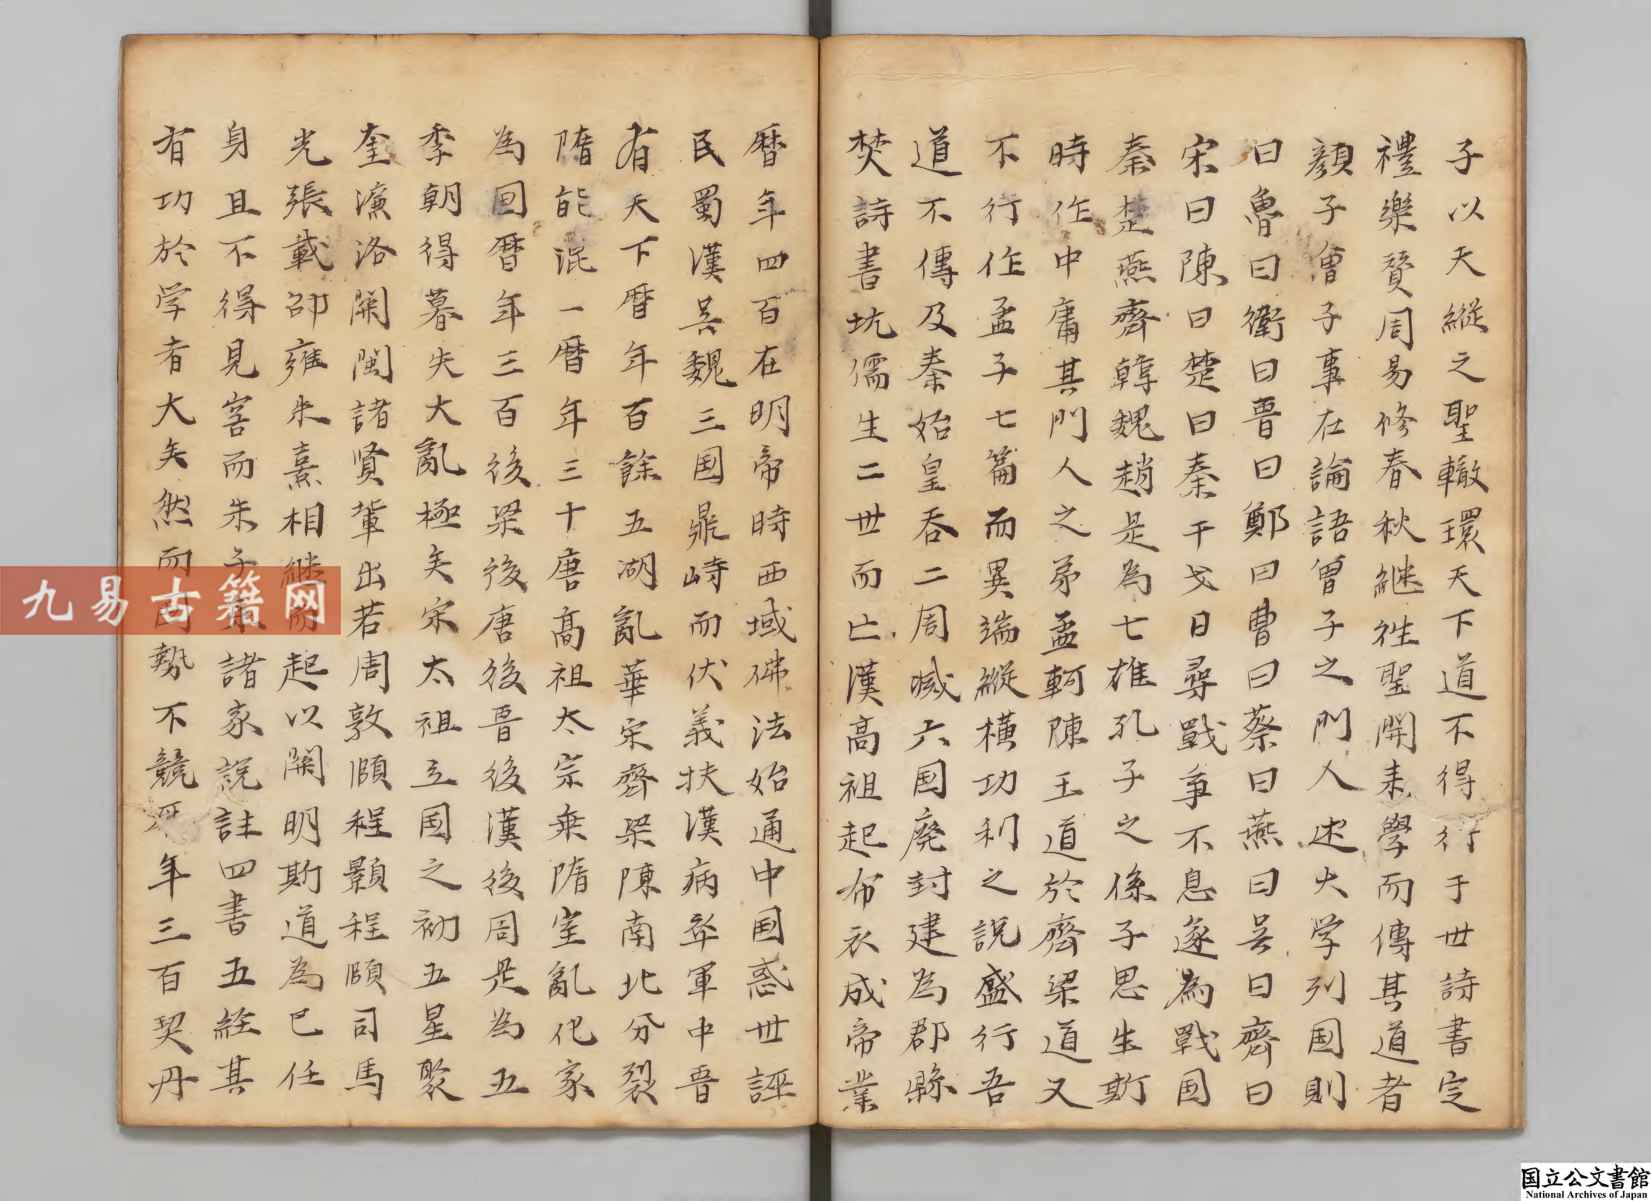 子以天縱之聖轍環天下道不得行于世詩書定
禮樂贊周易修春秋継徃聖開耒學而傳其道者
顔子曾子事在論語曽子之門人述大学列国則
曰魯曰衛曰晋曰鄭曰曹曰蔡曰燕曰吴曰齊曰
宋曰陳曰楚曰秦干戈日尋戰爭不息遂為戰国
秦楚燕齊韓魏趙是為七雄孔子之係子思生斯
時作中庸其門人之弟孟軻陳王道於齊梁道又
不行作孟子七篇而異端縱横功利之說盛行吾
道不傳及秦始皇吞二周滅六国廃封建為郡縣
焚詩書坑儒生二世而亡漢高祖起布衣成帝業
暦年四百在明帝時西域佛法始通中国惑世誣
民蜀漢吴魏三国鼎峙而伏義扶漢病卒軍中晋
有天下暦年百餘五湖亂華宋齊梁陳南北分裂
隋能混一暦年三十唐髙祖太宗乗隋室亂化家
為囯暦年三百後梁後唐後晋後漢後周是為五
季朝得暮失大亂極矣宋太祖立国之初五星聚
奎濂洛関閩諸贤輩出若周敦頤程顥程頤司馬
光張載邵雍朱熹相継而起以闡明斯道為已任
身且不得見容而朱子集諸家説註四書五経其
有功於学者大矣然而国勢不競 年三百契丹
九易古籍网
国立公文書館
National Archives of Japan